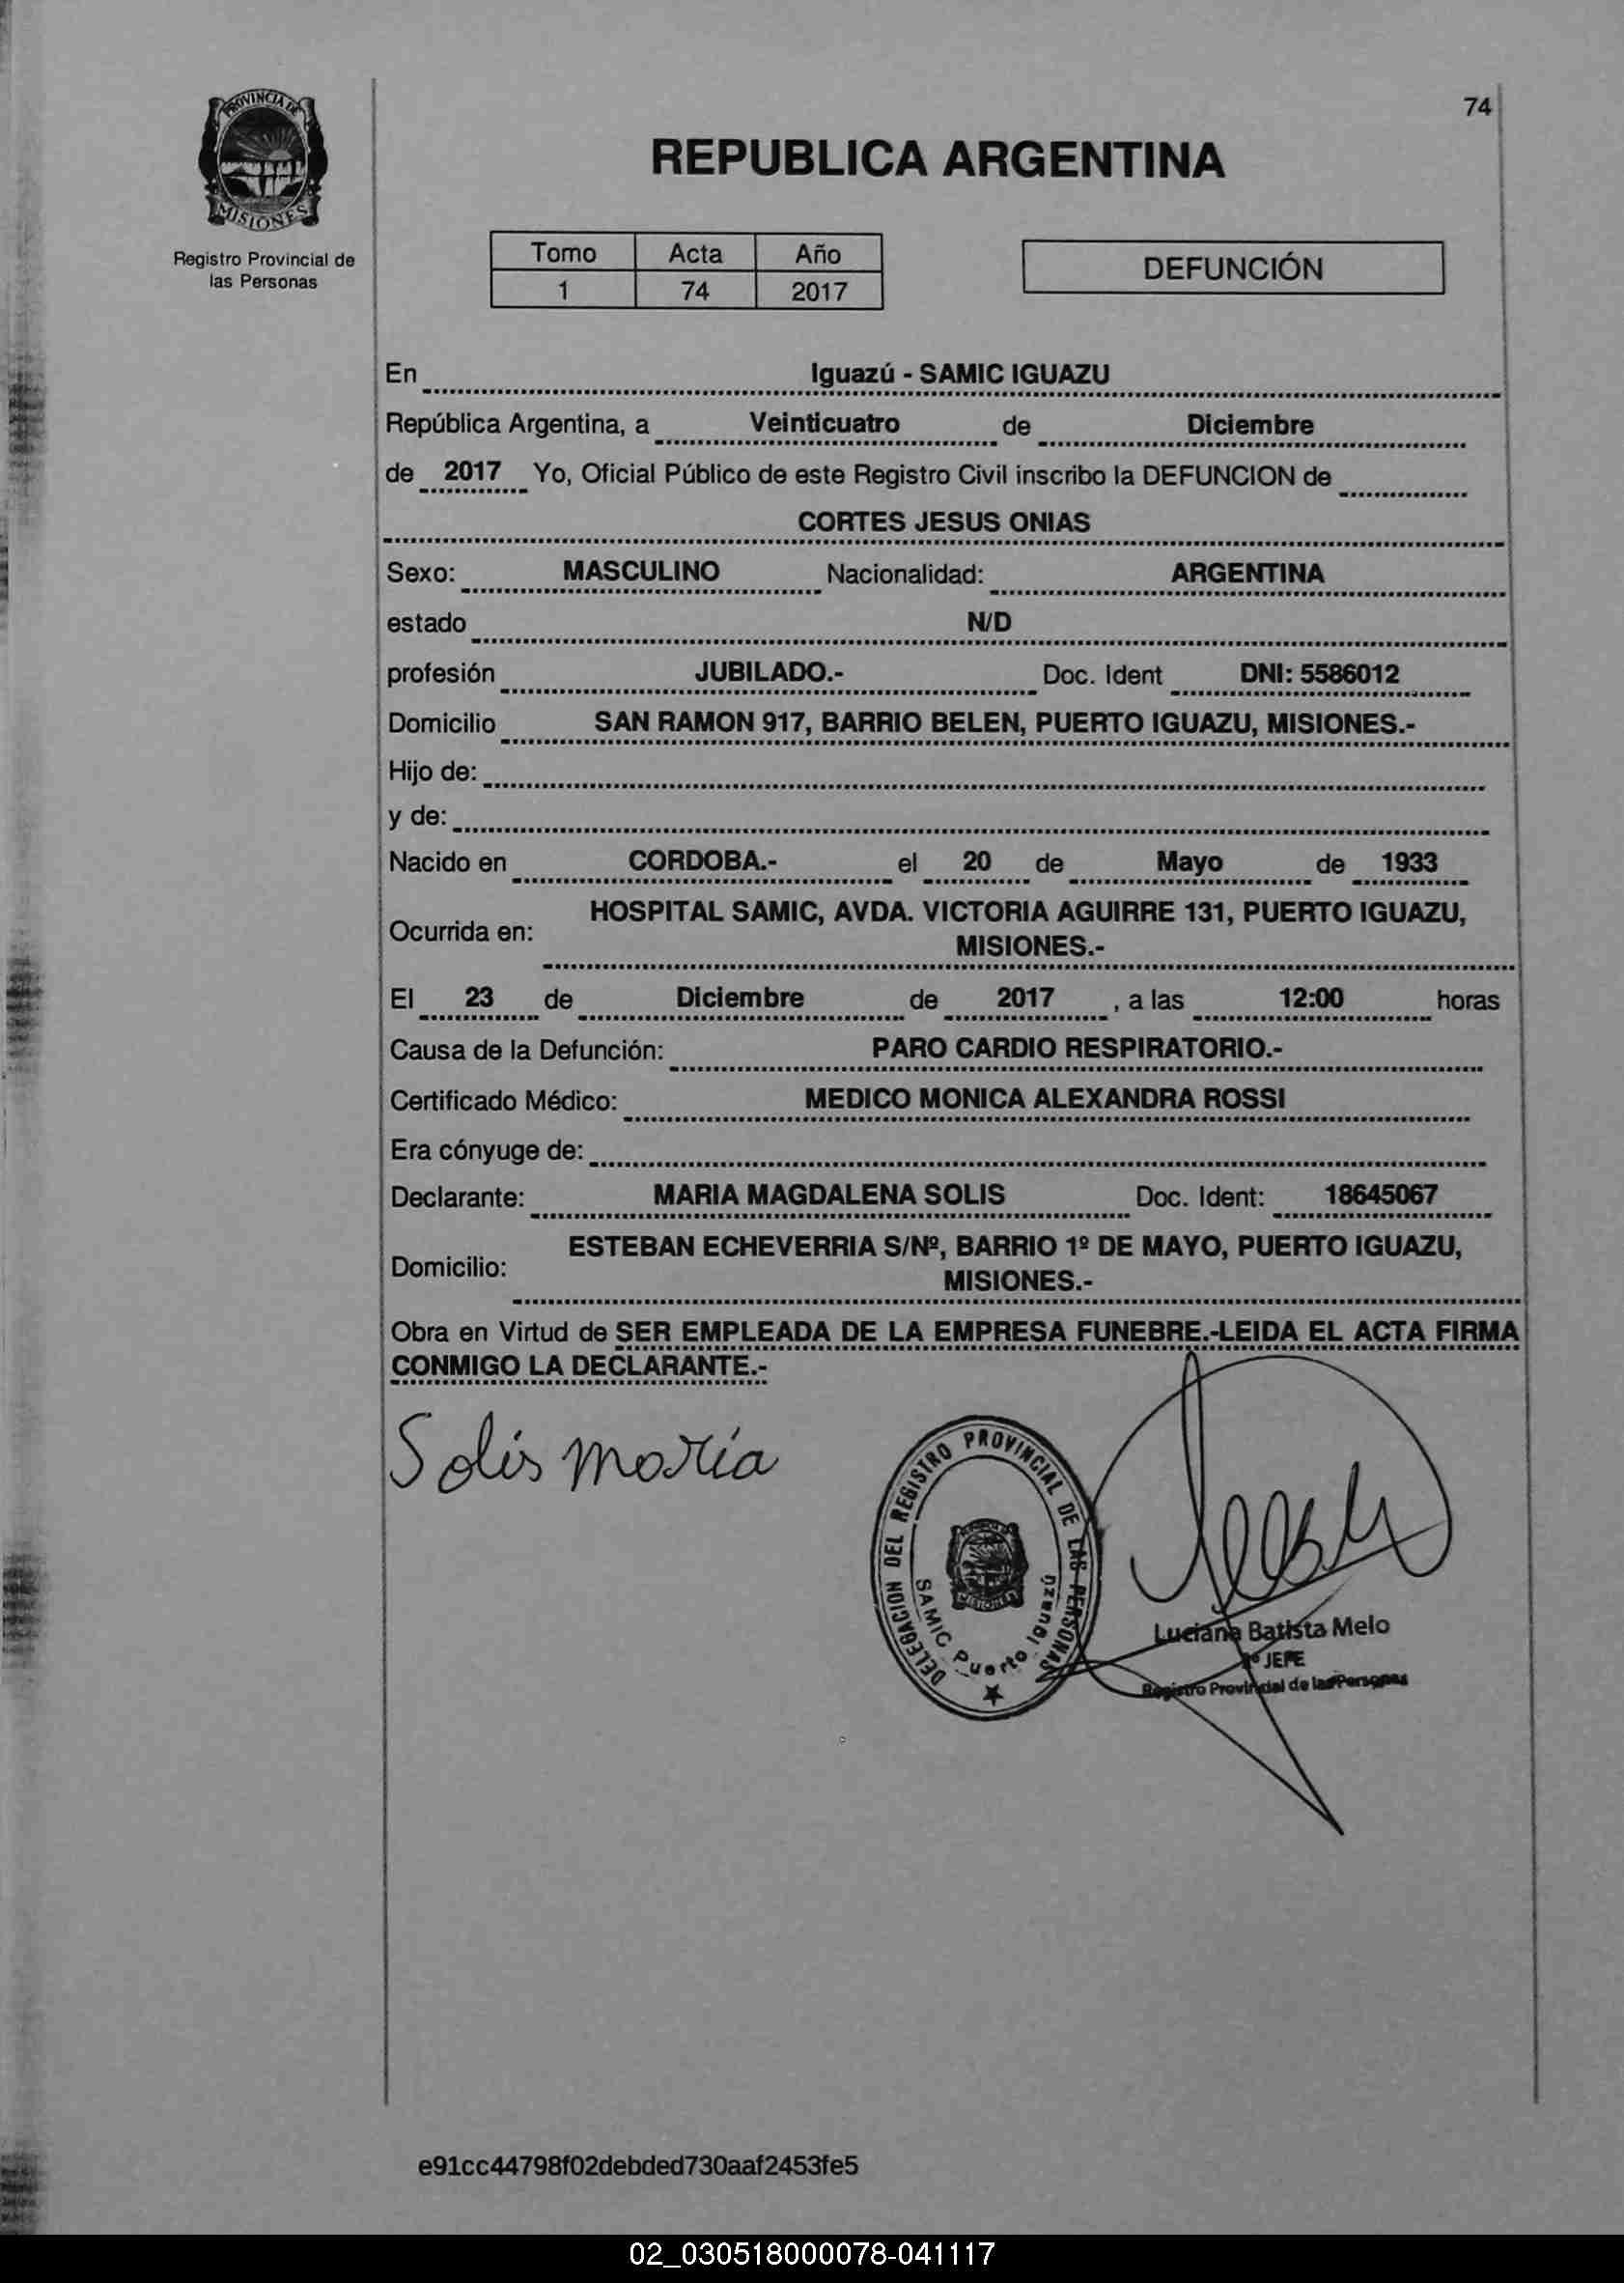 74
PROVINCIA DE
MISIONES
Registro Provincial de
las Personas
REPUBLICA ARGENTINA
Tomo Acta Año
1 74 2017
DEFUNCIÓN
En Iguazú - SAMIC IGUAZU
República Argentina, a Veinticuatro de Diciembre
de 2017 Yo, Oficial Público de este Registro Civil inscribo la DEFUNCION de
CORTES JESUS ONIAS
Sexo: MASCULINO Nacionalidad: ARGENTINA
estado N/D
profesión JUBILADO.- Doc. Ident DNI: 5586012
Domicilio SAN RAMON 917, BARRIO BELEN, PUERTO IGUAZU, MISIONES.-
Hijo de:
y de:
Nacido en CORDOBA.- el 20 de Mayo de 1933
Ocurrida en: HOSPITAL SAMIC, AVDA. VICTORIA AGUIRRE 131, PUERTO IGUAZU,
MISIONES.-
El 23 de Diciembre de 2017 , a las 12:00 horas
Causa de la Defunción: PARO CARDIO RESPIRATORIO.-
Certificado Médico: MEDICO MONICA ALEXANDRA ROSSI
Era cónyuge de:
Declarante: MARIA MAGDALENA SOLIS Doc. Ident: 18645067
Domicilio: ESTEBAN ECHEVERRIA S/Nº, BARRIO 1º DE MAYO, PUERTO IGUAZU,
MISIONES.-
Obra en Virtud de SER EMPLEADA DE LA EMPRESA FUNEBRE.-LEIDA EL ACTA FIRMA
CONMIGO LA DECLARANTE.-
Solis maria
DELEGACION DEL REGISTRO PROVINCIAL DE LAS PERSONAS
SAMIC Puerto Iguazú
MISIONES
Luciana Batista Melo
JEFE
Registro Provincial de las Personas
e91cc44798f02debded730aaf2453fe5
02_030518000078-041117